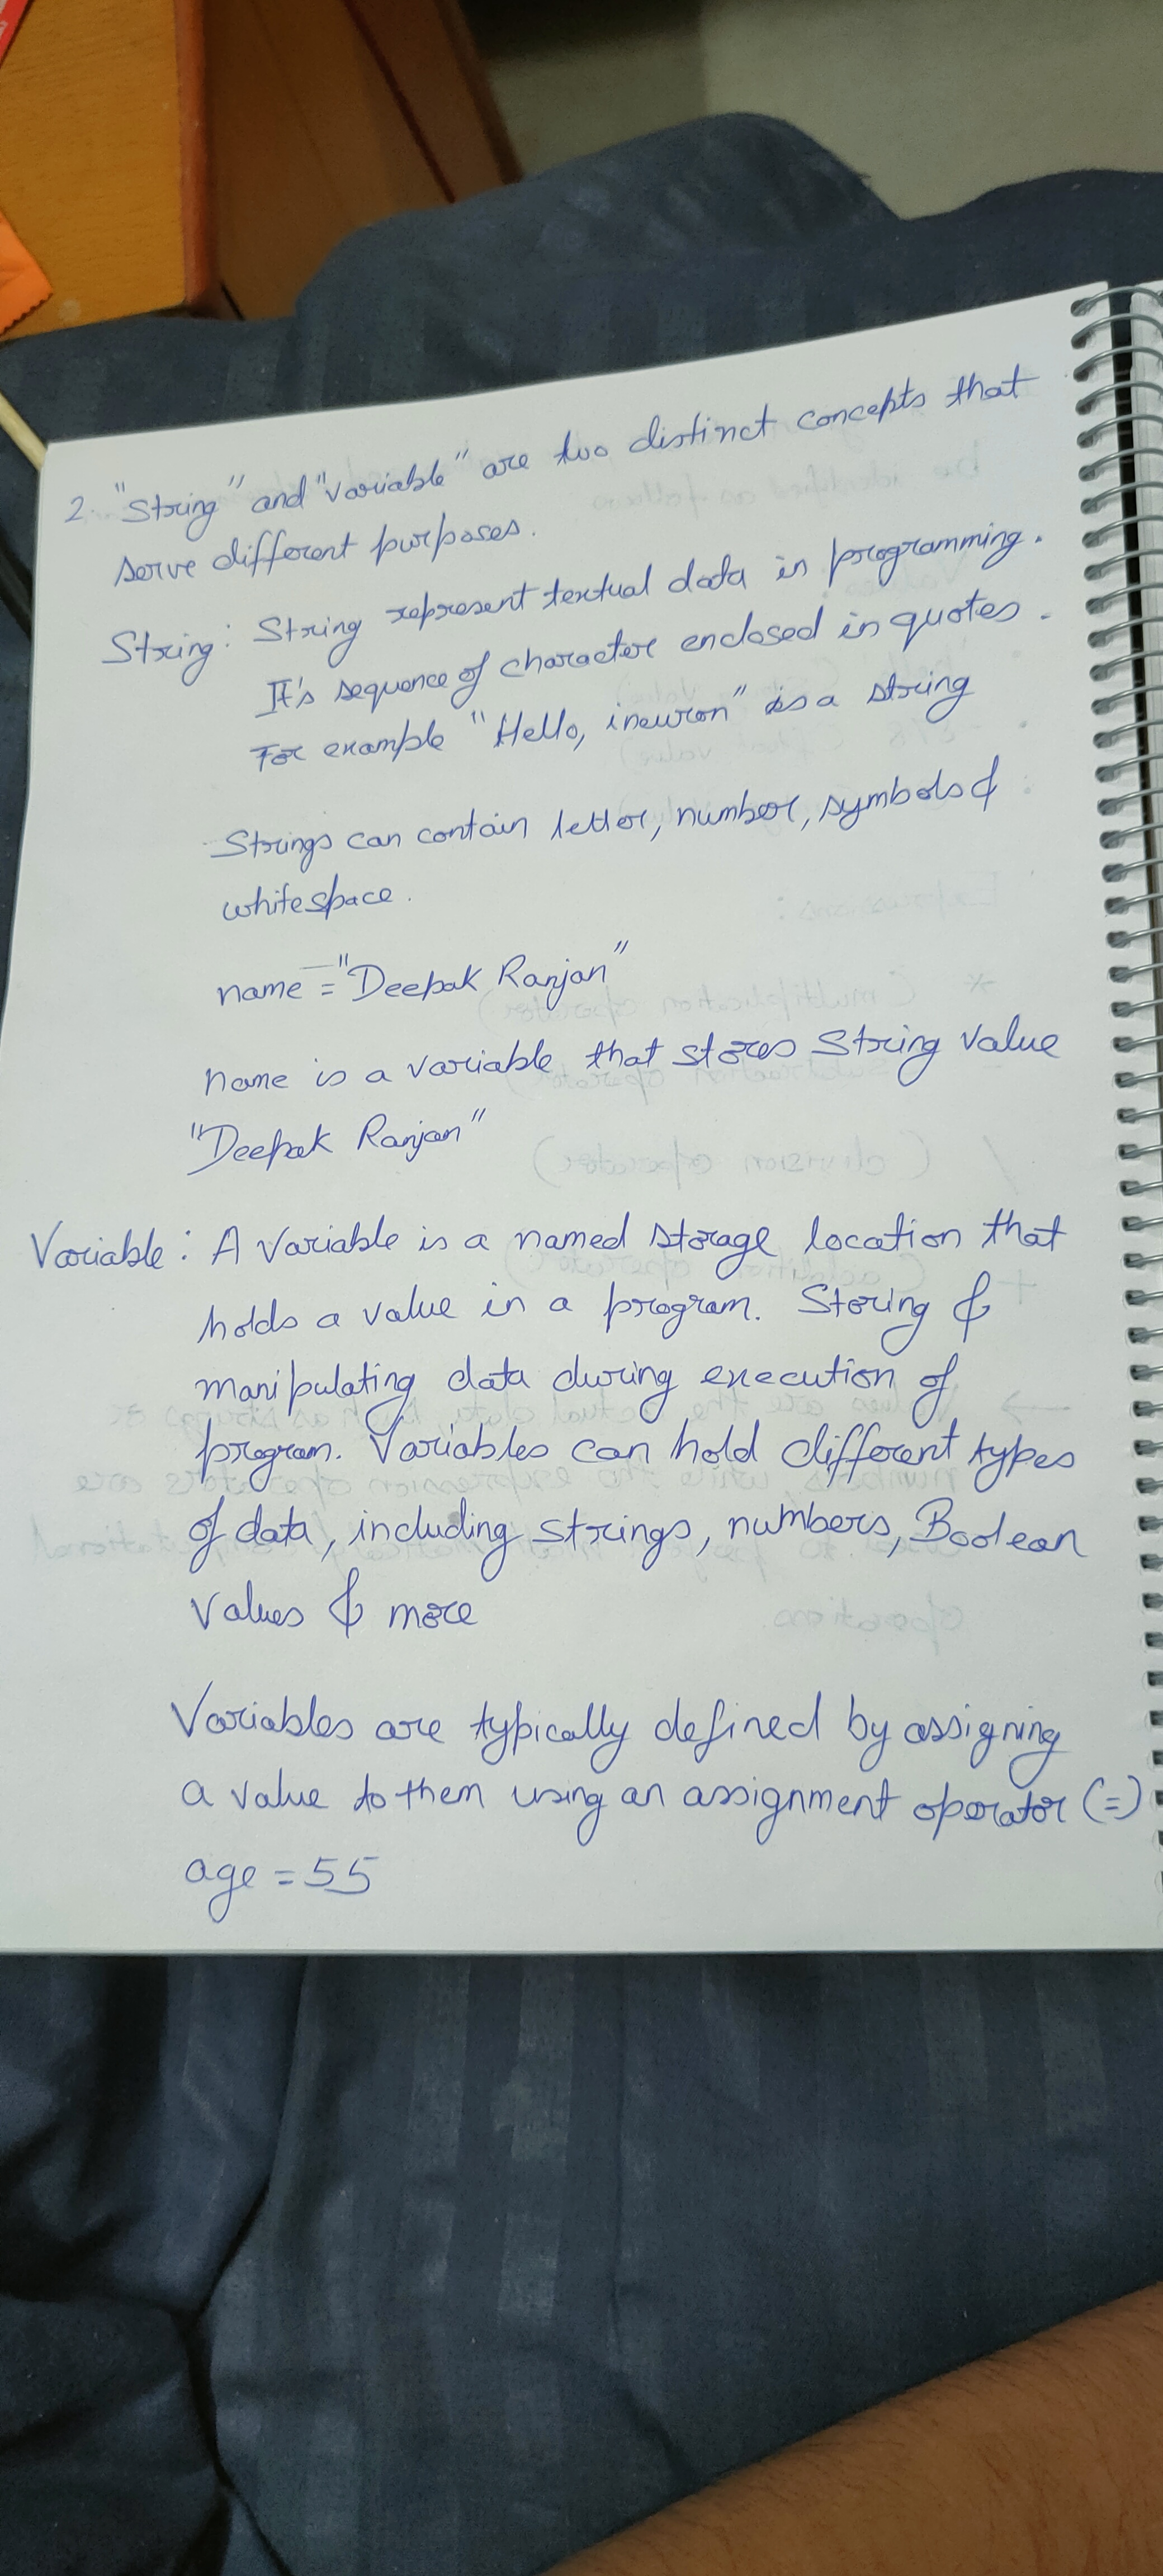 2. "String" and "variable" are two distinct concepts that
serve different purposes.
String: String represent textual data in programming.
It's sequence of character enclosed in quotes.
For example "Hello, ineuron" is a string
Strings can contain letter, number, symbols &
whitespace.
name = "Deepak Ranjan"
name is a variable that stores String value
"Deepak Ranjan"
Variable: A variable is a named storage location that
holds a value in a program. Storing &
manipulating data during execution of
program. Variables can hold different types
of data, including strings, numbers, Boolean
values & more
Variables are typically defined by assigning
a value to them using an assignment operator (=)
age = 55